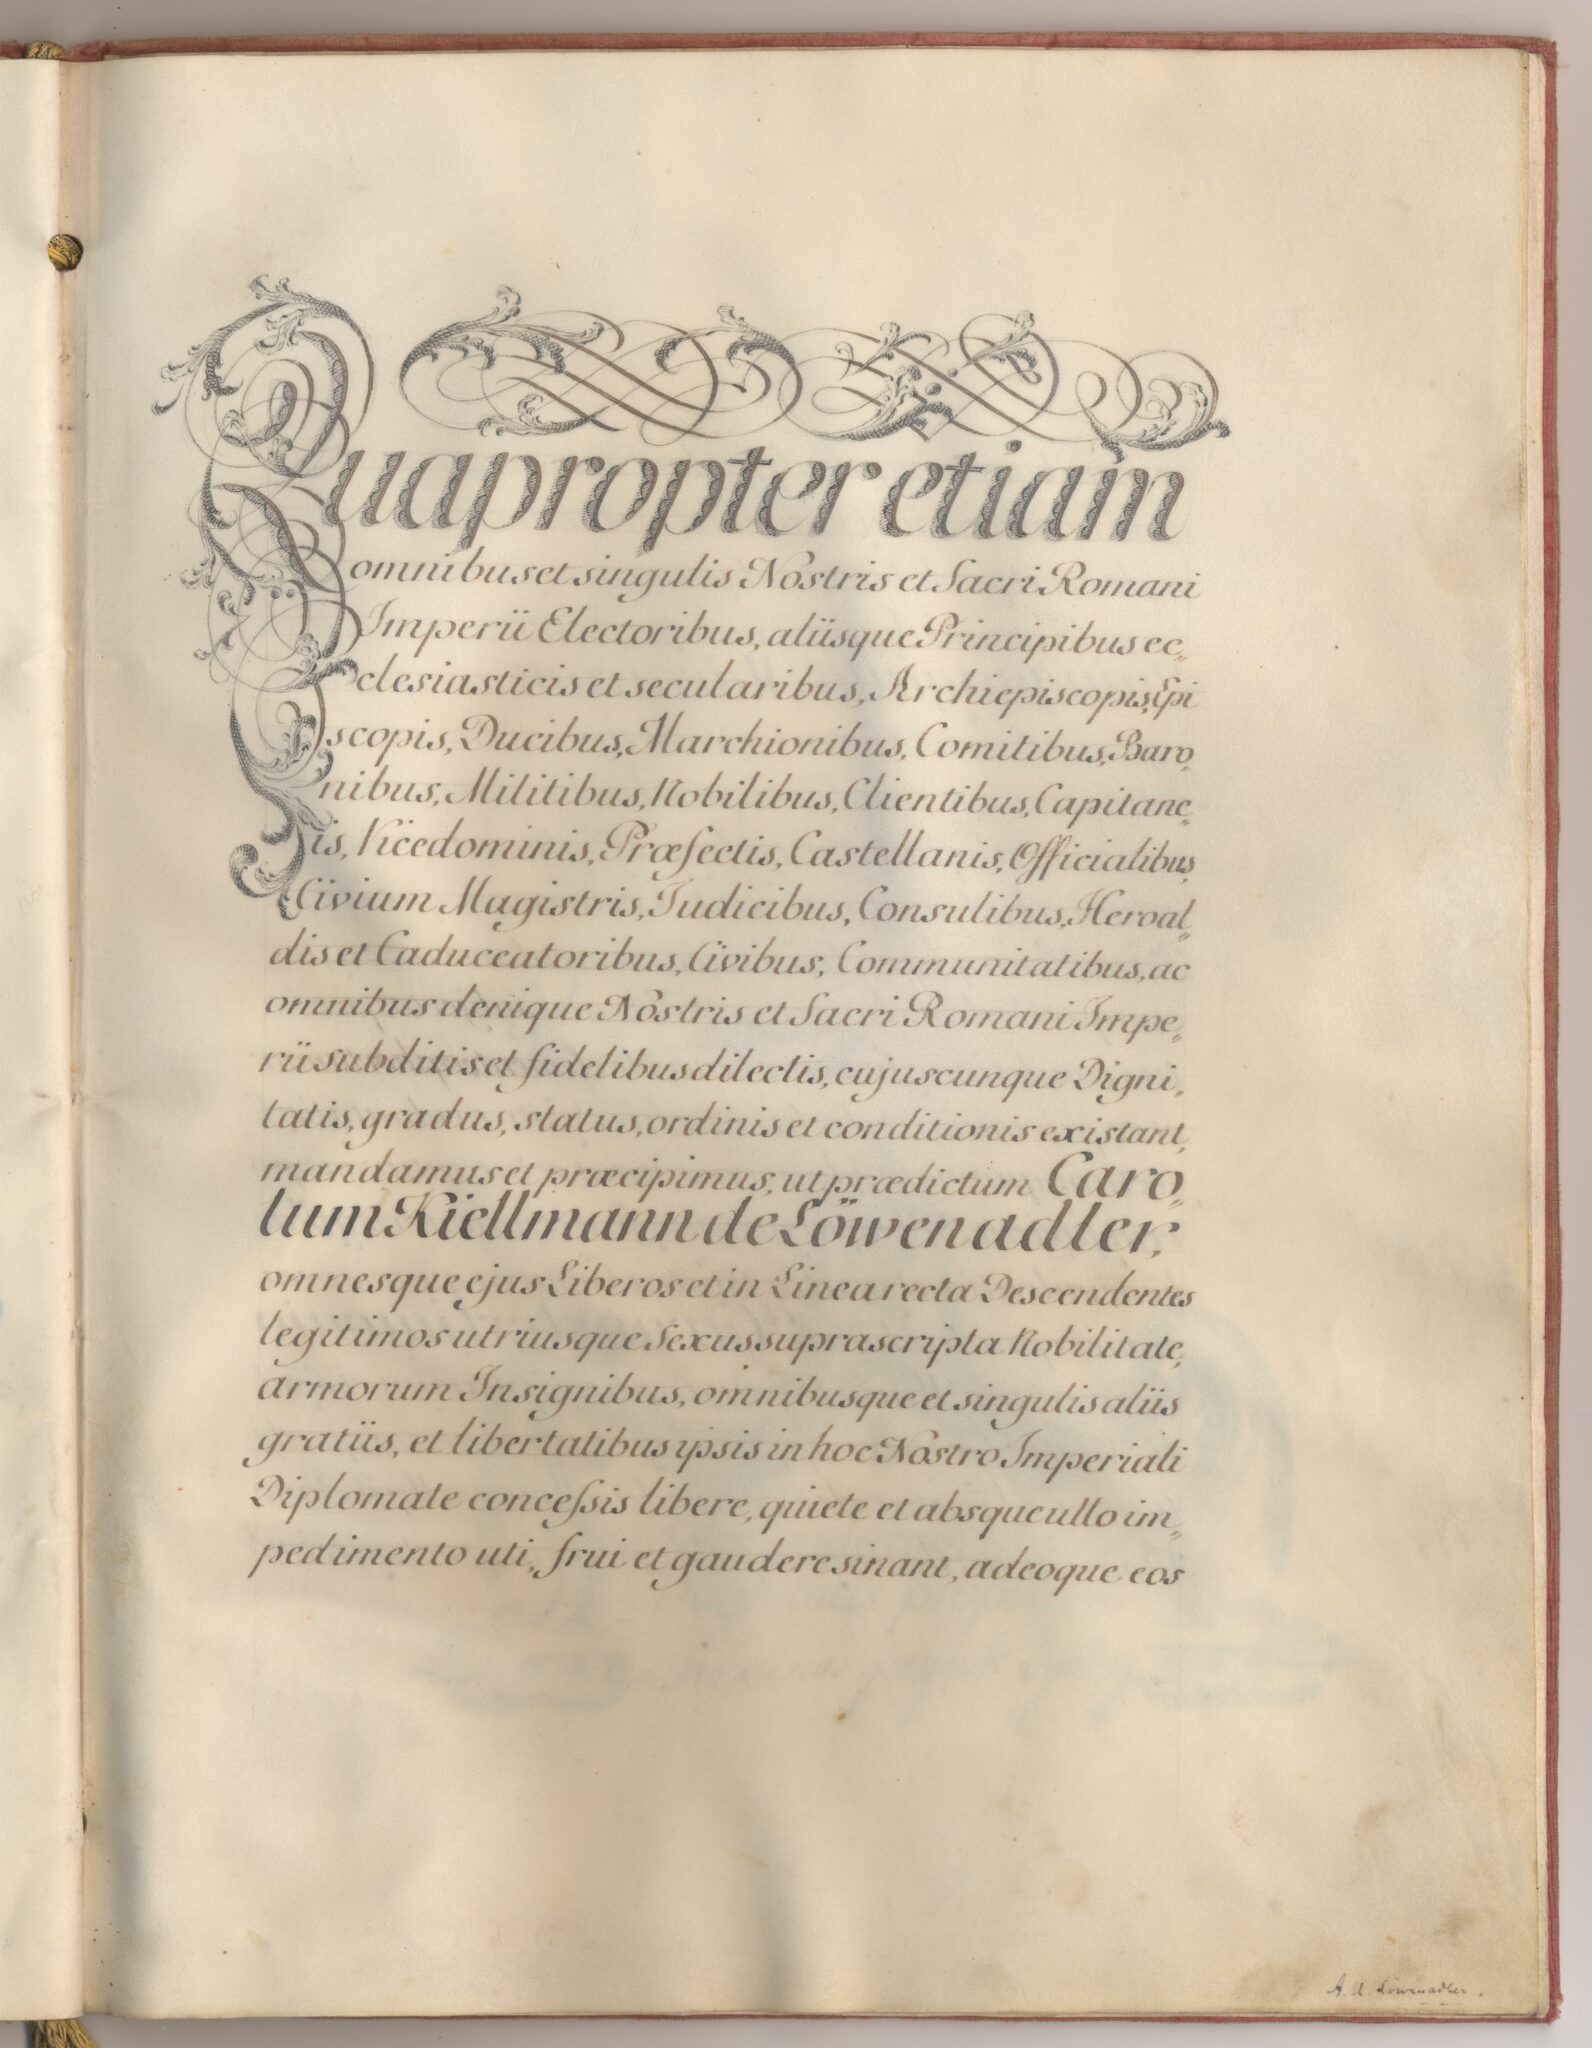 Quapropter etiam
omnibus et singulis Nostris et Sacri Romani
Imperii Electoribus, aliisque Principibus ec=
clesiasticis et secularibus, Archiepiscopis, Epi
scopis, Ducibus, Marchionibus, Comitibus, Baro,
nibus, Militibus, Nobilibus, Clientibus, Capitane=
is, Vicedominis, Præfectis, Castellanis, Officialibus,
Civium Magistris, Judicibus, Consulibus, Heroal=
dis et Caduceatoribus, Civibus, Communitatibus, ac
omnibus denique Nostris et Sacri Romani Impe=
rii subditis et fidelibus dilectis, cujuscunque Digni=
tatis, gradus, status, ordinis et conditionis existant,
mandamus et præcipimus, ut prædictum Caro=
lum Kiellmann de Löwenadler,
omnesque ejus Liberos et in Linea recta Descendentes
legitimos utriusque Sexus suprascripta Nobilitate,
armorum Insignibus, omnibusque et singulis aliis
gratiis, et libertatibus ipsis in hoc Nostro Imperiali
Diplomate conceſsis libere, quiete et absque ullo im=
pedimento uti, frui et gaudere sinant, adeoque eos
A. U. Löwenadler.